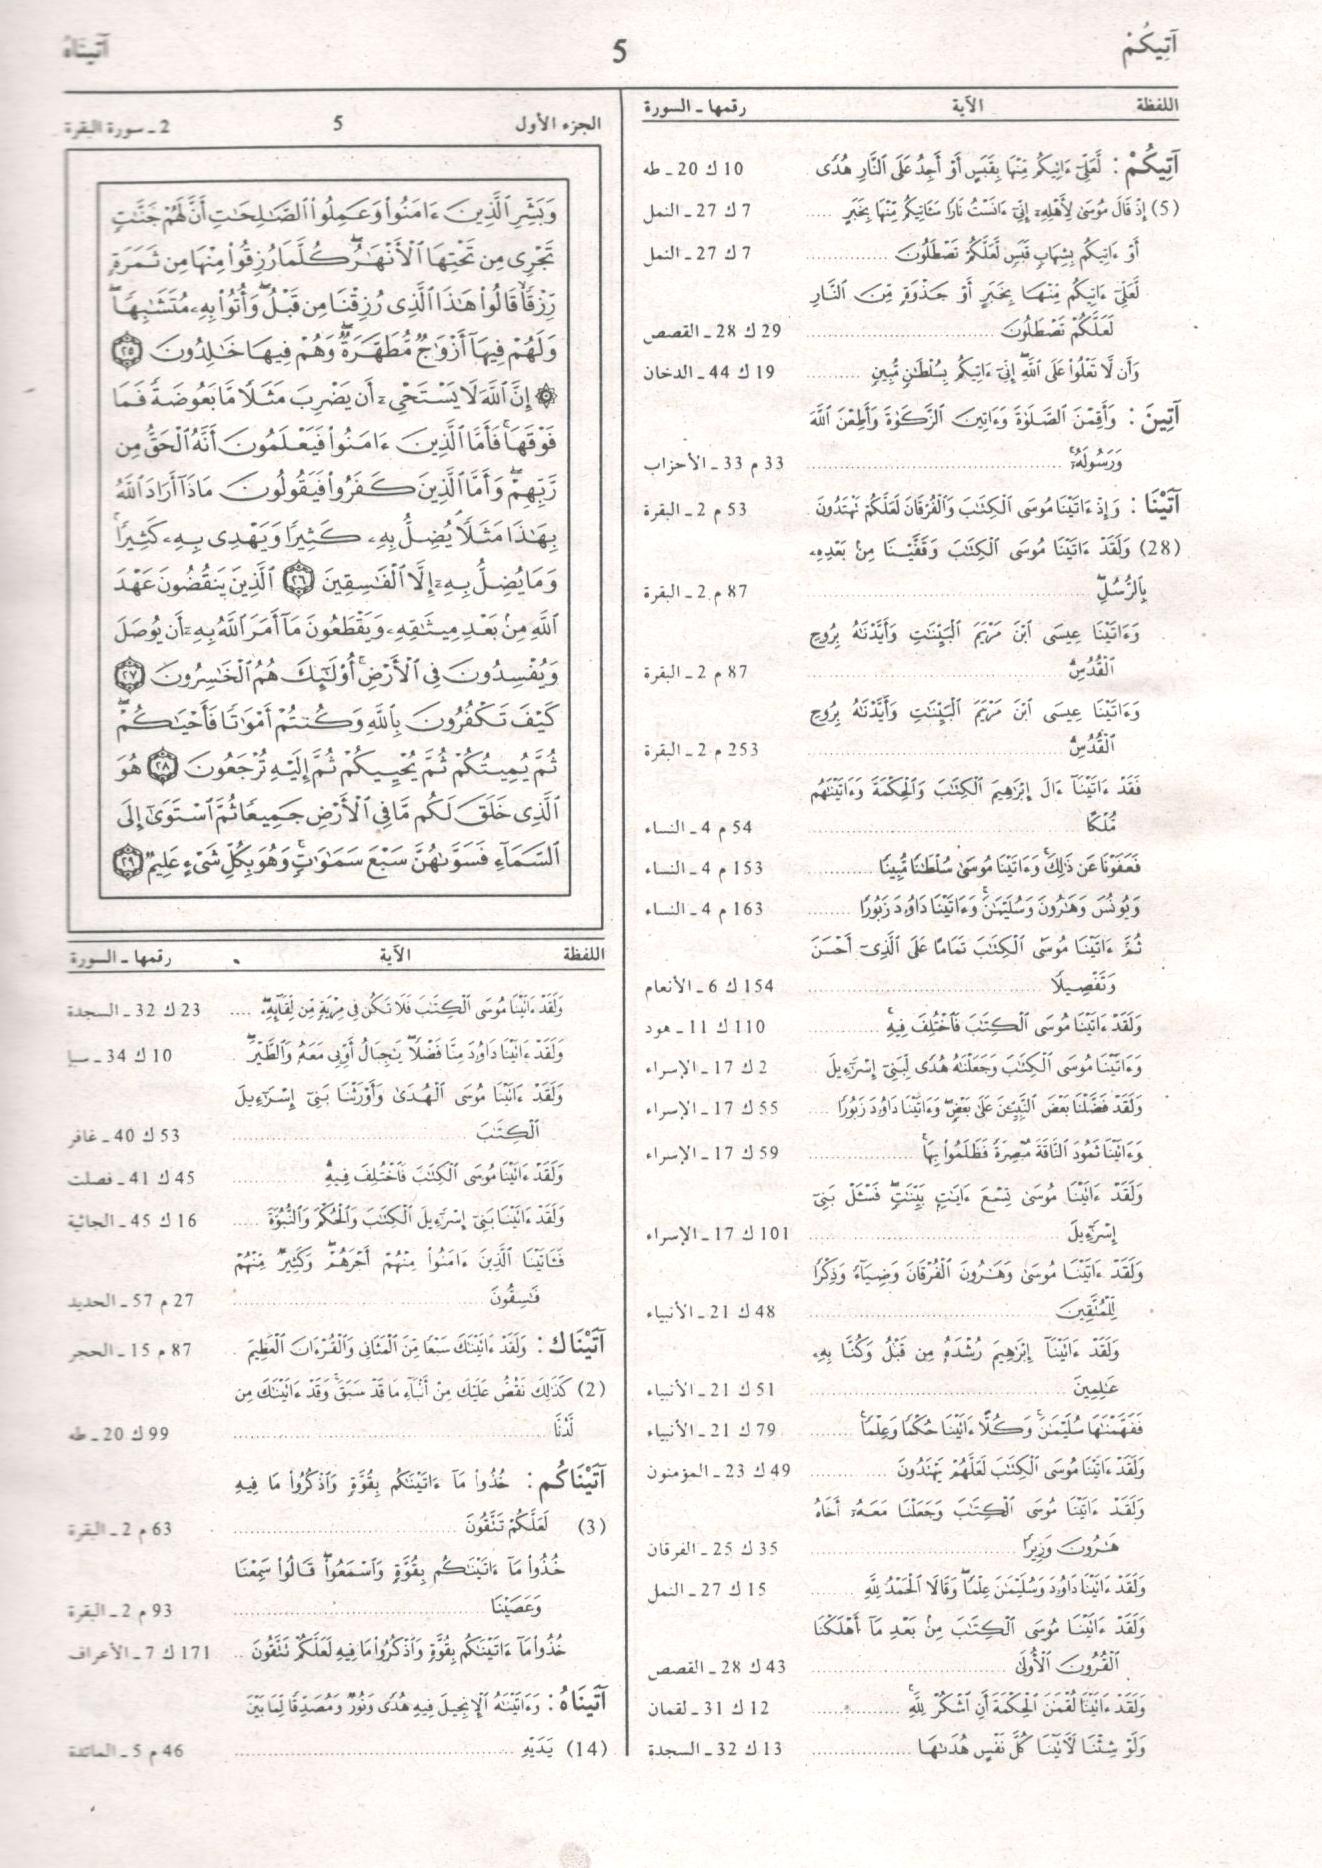 آتِيكُمْ
5
آتَيْنَاهُ
اللفظة الآية رقمها ـ السورة
آتِيكُمْ : لَّعَلِّىٓ ءَاتِيكُم مِّنْهَا بِقَبَسٍ أَوْ أَجِدُ عَلَى ٱلنَّارِ هُدًى 10 ك 20 ـ طه
(5) إِذْ قَالَ مُوسَىٰ لِأَهْلِهِۦٓ إِنِّىٓ ءَانَسْتُ نَارًا سَـَٔاتِيكُم مِّنْهَا بِخَبَرٍ ..... 7 ك 27 ـ النمل
أَوْ ءَاتِيكُم بِشِهَابٍ قَبَسٍ لَّعَلَّكُمْ تَصْطَلُونَ ............... 7 ك 27 ـ النمل
لَّعَلِّىٓ ءَاتِيكُم مِّنْهَا بِخَبَرٍ أَوْ جَذْوَةٍ مِّنَ ٱلنَّارِ
لَعَلَّكُمْ تَصْطَلُونَ ............... 29 ك 28 ـ القصص
وَأَن لَّا تَعْلُوا۟ عَلَى ٱللَّهِ إِنِّىٓ ءَاتِيكُم بِسُلْطَٰنٍ مُّبِينٍ .......... 19 ك 44 ـ الدخان
آتِينَ : وَأَقِمْنَ ٱلصَّلَوٰةَ وَءَاتِينَ ٱلزَّكَوٰةَ وَأَطِعْنَ ٱللَّهَ
وَرَسُولَهُۥٓ ............... 33 م 33 ـ الأحزاب
آتَيْنَا : وَإِذْ ءَاتَيْنَا مُوسَى ٱلْكِتَٰبَ وَٱلْفُرْقَانَ لَعَلَّكُمْ تَهْتَدُونَ . 53 م 2 ـ البقرة
(28) وَلَقَدْ ءَاتَيْنَا مُوسَى ٱلْكِتَٰبَ وَقَفَّيْنَا مِنۢ بَعْدِهِۦ
بِٱلرُّسُلِ ............... 87 م 2 ـ البقرة
وَءَاتَيْنَا عِيسَى ٱبْنَ مَرْيَمَ ٱلْبَيِّنَٰتِ وَأَيَّدْنَٰهُ بِرُوحِ
ٱلْقُدُسِ ............... 87 م 2 ـ البقرة
وَءَاتَيْنَا عِيسَى ٱبْنَ مَرْيَمَ ٱلْبَيِّنَٰتِ وَأَيَّدْنَٰهُ بِرُوحِ
ٱلْقُدُسِ ............... 253 م 2 ـ البقرة
فَقَدْ ءَاتَيْنَآ ءَالَ إِبْرَٰهِيمَ ٱلْكِتَٰبَ وَٱلْحِكْمَةَ وَءَاتَيْنَٰهُم
مُّلْكًا ............... 54 م 4 ـ النساء
فَعَفَوْنَا عَن ذَٰلِكَ وَءَاتَيْنَا مُوسَىٰ سُلْطَٰنًا مُّبِينًا .......... 153 م 4 ـ النساء
وَيُونُسَ وَهَٰرُونَ وَسُلَيْمَٰنَ وَءَاتَيْنَا دَاوُۥدَ زَبُورًا ........ 163 م 4 ـ النساء
ثُمَّ ءَاتَيْنَا مُوسَى ٱلْكِتَٰبَ تَمَامًا عَلَى ٱلَّذِىٓ أَحْسَنَ
وَتَفْصِيلًا ............... 154 ك 6 ـ الأنعام
وَلَقَدْ ءَاتَيْنَا مُوسَى ٱلْكِتَٰبَ فَٱخْتُلِفَ فِيهِ .......... 110 ك 11 ـ هود
وَءَاتَيْنَا مُوسَى ٱلْكِتَٰبَ وَجَعَلْنَٰهُ هُدًى لِّبَنِىٓ إِسْرَٰٓءِيلَ . 2 ك 17 ـ الإسراء
وَلَقَدْ فَضَّلْنَا بَعْضَ ٱلنَّبِيِّـۧنَ عَلَىٰ بَعْضٍ وَءَاتَيْنَا دَاوُۥدَ زَبُورًا .... 55 ك 17 ـ الإسراء
وَءَاتَيْنَا ثَمُودَ ٱلنَّاقَةَ مُبْصِرَةً فَظَلَمُوا۟ بِهَا ............... 59 ك 17 ـ الإسراء
وَلَقَدْ ءَاتَيْنَا مُوسَىٰ تِسْعَ ءَايَٰتٍۭ بَيِّنَٰتٍ فَسْـَٔلْ بَنِىٓ
إِسْرَٰٓءِيلَ ............... 101 ك 17 ـ الإسراء
وَلَقَدْ ءَاتَيْنَا مُوسَىٰ وَهَٰرُونَ ٱلْفُرْقَانَ وَضِيَآءً وَذِكْرًا
لِّلْمُتَّقِينَ ............... 48 ك 21 ـ الأنبياء
وَلَقَدْ ءَاتَيْنَآ إِبْرَٰهِيمَ رُشْدَهُۥ مِن قَبْلُ وَكُنَّا بِهِۦ
عَٰلِمِينَ ............... 51 ك 21 ـ الأنبياء
فَفَهَّمْنَٰهَا سُلَيْمَٰنَ وَكُلًّا ءَاتَيْنَا حُكْمًا وَعِلْمًا ....... 79 ك 21 ـ الأنبياء
وَلَقَدْ ءَاتَيْنَا مُوسَى ٱلْكِتَٰبَ لَعَلَّهُمْ يَهْتَدُونَ .......... 49 ك 23 ـ المؤمنون
وَلَقَدْ ءَاتَيْنَا مُوسَى ٱلْكِتَٰبَ وَجَعَلْنَا مَعَهُۥٓ أَخَاهُ
هَٰرُونَ وَزِيرًا ............... 35 ك 25 ـ الفرقان
وَلَقَدْ ءَاتَيْنَا دَاوُۥدَ وَسُلَيْمَٰنَ عِلْمًا وَقَالَا ٱلْحَمْدُ لِلَّهِ ....... 15 ك 27 ـ النمل
وَلَقَدْ ءَاتَيْنَا مُوسَى ٱلْكِتَٰبَ مِنۢ بَعْدِ مَآ أَهْلَكْنَا
ٱلْقُرُونَ ٱلْأُولَىٰ ............... 43 ك 28 ـ القصص
وَلَقَدْ ءَاتَيْنَا لُقْمَٰنَ ٱلْحِكْمَةَ أَنِ ٱشْكُرْ لِلَّهِ .......... 12 ك 31 ـ لقمان
وَلَوْ شِئْنَا لَـَٔاتَيْنَا كُلَّ نَفْسٍ هُدَىٰهَا ............... 13 ك 32 ـ السجدة
الجزء الأول 5 2 ـ سورة البقرة
وَبَشِّرِ ٱلَّذِينَ ءَامَنُوا۟ وَعَمِلُوا۟ ٱلصَّٰلِحَٰتِ أَنَّ لَهُمْ جَنَّٰتٍ
تَجْرِى مِن تَحْتِهَا ٱلْأَنْهَٰرُ ۖ كُلَّمَا رُزِقُوا۟ مِنْهَا مِن ثَمَرَةٍ
رِّزْقًا ۙ قَالُوا۟ هَٰذَا ٱلَّذِى رُزِقْنَا مِن قَبْلُ ۖ وَأُتُوا۟ بِهِۦ مُتَشَٰبِهًا ۖ
وَلَهُمْ فِيهَآ أَزْوَٰجٌ مُّطَهَّرَةٌ ۖ وَهُمْ فِيهَا خَٰلِدُونَ ٢٥
۞ إِنَّ ٱللَّهَ لَا يَسْتَحْىِۦٓ أَن يَضْرِبَ مَثَلًا مَّا بَعُوضَةً فَمَا
فَوْقَهَا ۚ فَأَمَّا ٱلَّذِينَ ءَامَنُوا۟ فَيَعْلَمُونَ أَنَّهُ ٱلْحَقُّ مِن
رَّبِّهِمْ ۖ وَأَمَّا ٱلَّذِينَ كَفَرُوا۟ فَيَقُولُونَ مَاذَآ أَرَادَ ٱللَّهُ
بِهَٰذَا مَثَلًا ۘ يُضِلُّ بِهِۦ كَثِيرًا وَيَهْدِى بِهِۦ كَثِيرًا ۚ
وَمَا يُضِلُّ بِهِۦٓ إِلَّا ٱلْفَٰسِقِينَ ٢٦ ٱلَّذِينَ يَنقُضُونَ عَهْدَ
ٱللَّهِ مِنۢ بَعْدِ مِيثَٰقِهِۦ وَيَقْطَعُونَ مَآ أَمَرَ ٱللَّهُ بِهِۦٓ أَن يُوصَلَ
وَيُفْسِدُونَ فِى ٱلْأَرْضِ ۚ أُو۟لَٰٓئِكَ هُمُ ٱلْخَٰسِرُونَ ٢٧
كَيْفَ تَكْفُرُونَ بِٱللَّهِ وَكُنتُمْ أَمْوَٰتًا فَأَحْيَٰكُمْ ۖ
ثُمَّ يُمِيتُكُمْ ثُمَّ يُحْيِيكُمْ ثُمَّ إِلَيْهِ تُرْجَعُونَ ٢٨ هُوَ
ٱلَّذِى خَلَقَ لَكُم مَّا فِى ٱلْأَرْضِ جَمِيعًا ثُمَّ ٱسْتَوَىٰٓ إِلَى
ٱلسَّمَآءِ فَسَوَّىٰهُنَّ سَبْعَ سَمَٰوَٰتٍ ۚ وَهُوَ بِكُلِّ شَىْءٍ عَلِيمٌ ٢٩
اللفظة الآية رقمها ـ السورة
وَلَقَدْ ءَاتَيْنَا مُوسَى ٱلْكِتَٰبَ فَلَا تَكُن فِى مِرْيَةٍ مِّن لِّقَآئِهِۦ .... 23 ك 32 ـ السجدة
وَلَقَدْ ءَاتَيْنَا دَاوُۥدَ مِنَّا فَضْلًا يَٰجِبَالُ أَوِّبِى مَعَهُۥ وَٱلطَّيْرَ . 10 ك 34 ـ سبإ
وَلَقَدْ ءَاتَيْنَا مُوسَى ٱلْهُدَىٰ وَأَوْرَثْنَا بَنِىٓ إِسْرَٰٓءِيلَ
ٱلْكِتَٰبَ ............... 53 ك 40 ـ غافر
وَلَقَدْ ءَاتَيْنَا مُوسَى ٱلْكِتَٰبَ فَٱخْتُلِفَ فِيهِ ............... 45 ك 41 ـ فصلت
وَلَقَدْ ءَاتَيْنَا بَنِىٓ إِسْرَٰٓءِيلَ ٱلْكِتَٰبَ وَٱلْحُكْمَ وَٱلنُّبُوَّةَ ..... 16 ك 45 ـ الجاثية
فَـَٔاتَيْنَا ٱلَّذِينَ ءَامَنُوا۟ مِنْهُمْ أَجْرَهُمْ وَكَثِيرٌ مِّنْهُمْ
فَٰسِقُونَ ............... 27 م 57 ـ الحديد
آتَيْنَاكَ : وَلَقَدْ ءَاتَيْنَٰكَ سَبْعًا مِّنَ ٱلْمَثَانِى وَٱلْقُرْءَانَ ٱلْعَظِيمَ . 87 م 15 ـ الحجر
(2) كَذَٰلِكَ نَقُصُّ عَلَيْكَ مِنْ أَنۢبَآءِ مَا قَدْ سَبَقَ وَقَدْ ءَاتَيْنَٰكَ مِن
لَّدُنَّا ............... 99 ك 20 ـ طه
آتَيْنَاكُم : خُذُوا۟ مَآ ءَاتَيْنَٰكُم بِقُوَّةٍ وَٱذْكُرُوا۟ مَا فِيهِ
(3) لَعَلَّكُمْ تَتَّقُونَ ............... 63 م 2 ـ البقرة
خُذُوا۟ مَآ ءَاتَيْنَٰكُم بِقُوَّةٍ وَٱسْمَعُوا۟ قَالُوا۟ سَمِعْنَا
وَعَصَيْنَا ............... 93 م 2 ـ البقرة
خُذُوا۟ مَآ ءَاتَيْنَٰكُم بِقُوَّةٍ وَٱذْكُرُوا۟ مَا فِيهِ لَعَلَّكُمْ تَتَّقُونَ .. 171 ك 7 ـ الأعراف
آتَيْنَاهُ : وَءَاتَيْنَٰهُ ٱلْإِنجِيلَ فِيهِ هُدًى وَنُورٌ وَمُصَدِّقًا لِّمَا بَيْنَ
(14) يَدَيْهِ ............... 46 م 5 ـ المائدة